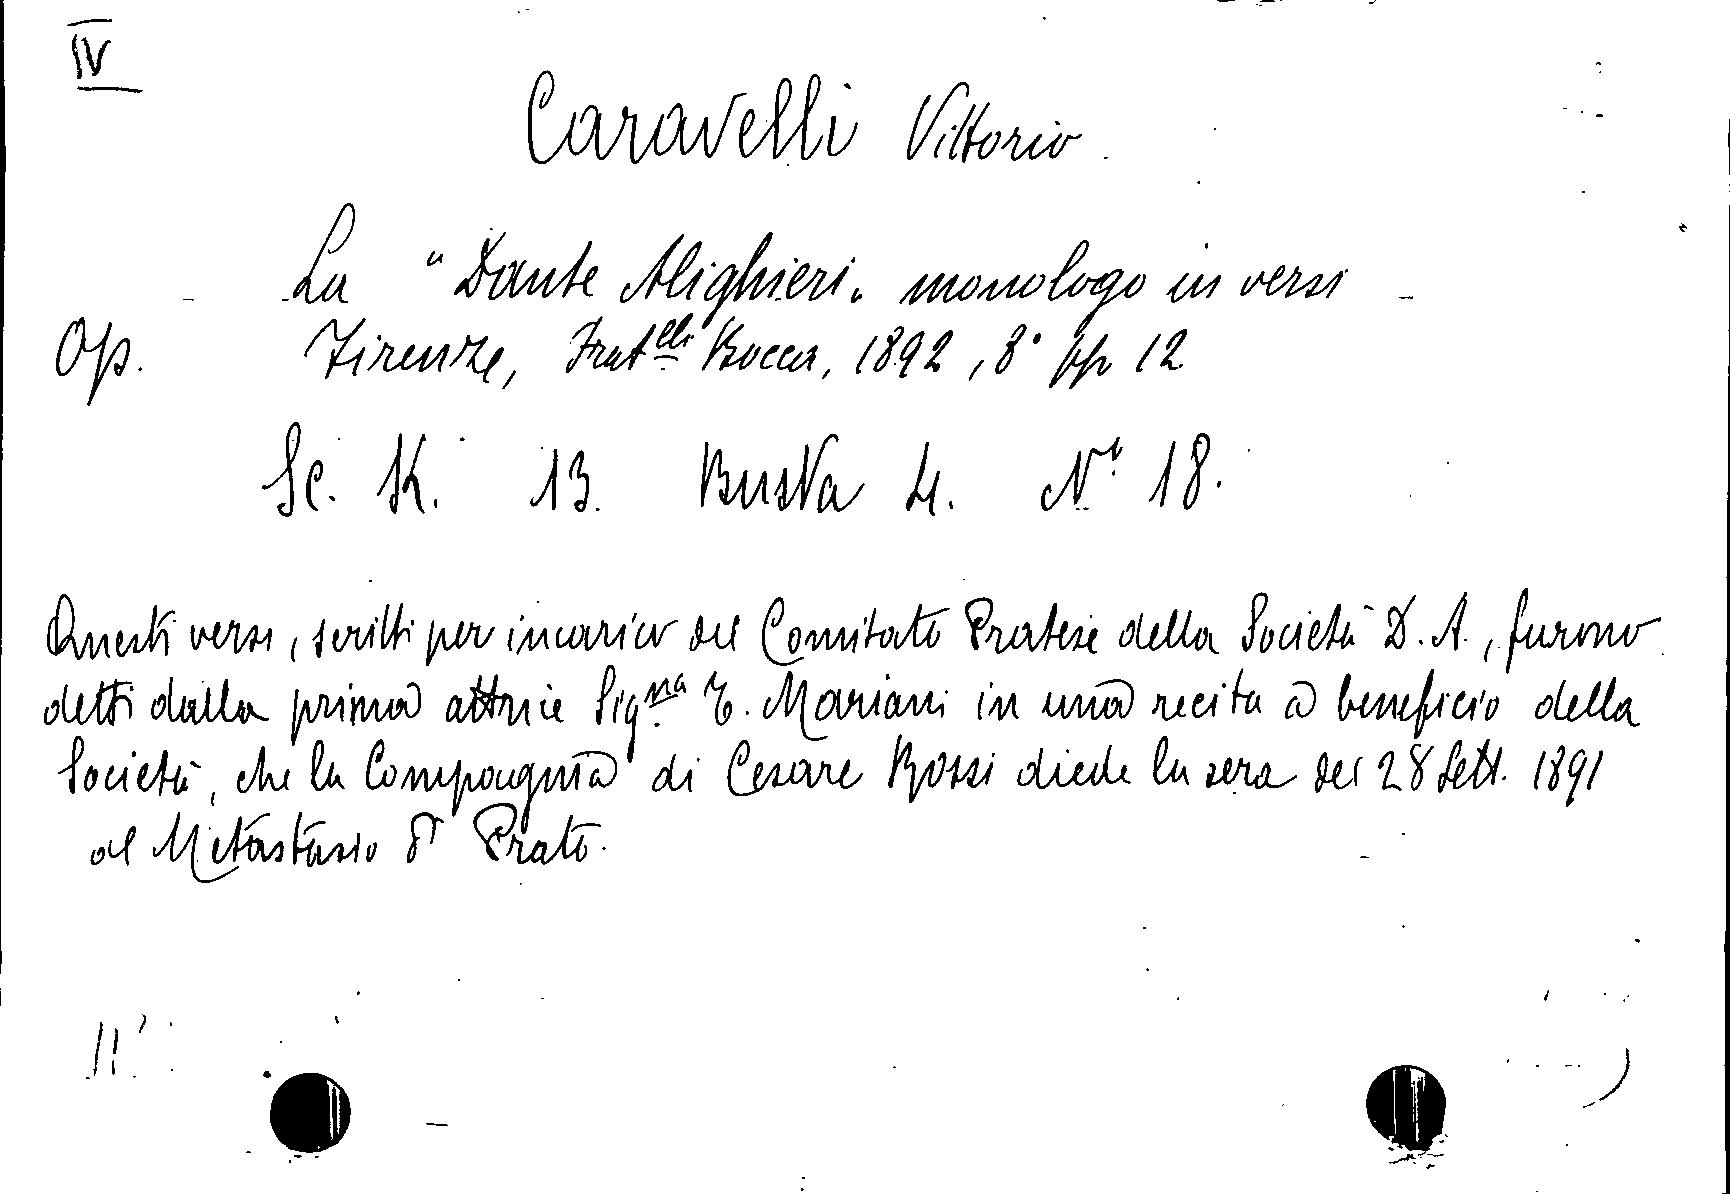 IV
Caravelli Vittorio.
La "Dante Alighieri" monologo in versi
Op. Firenze, Fratelli Bocca, 1892, 8° pp 12
Sc. K. 13. Busta 4. N.° 18.
Questi versi, scritti per incarico del Comitato Pratese della Società D. A., furono
detti dalla prima attrice Sig.na T. Mariani in una recita a beneficio della
Società, che la Compagnia di Cesare Rossi diede la sera del 28 Sett. 1891
al Metastasio di Prato.